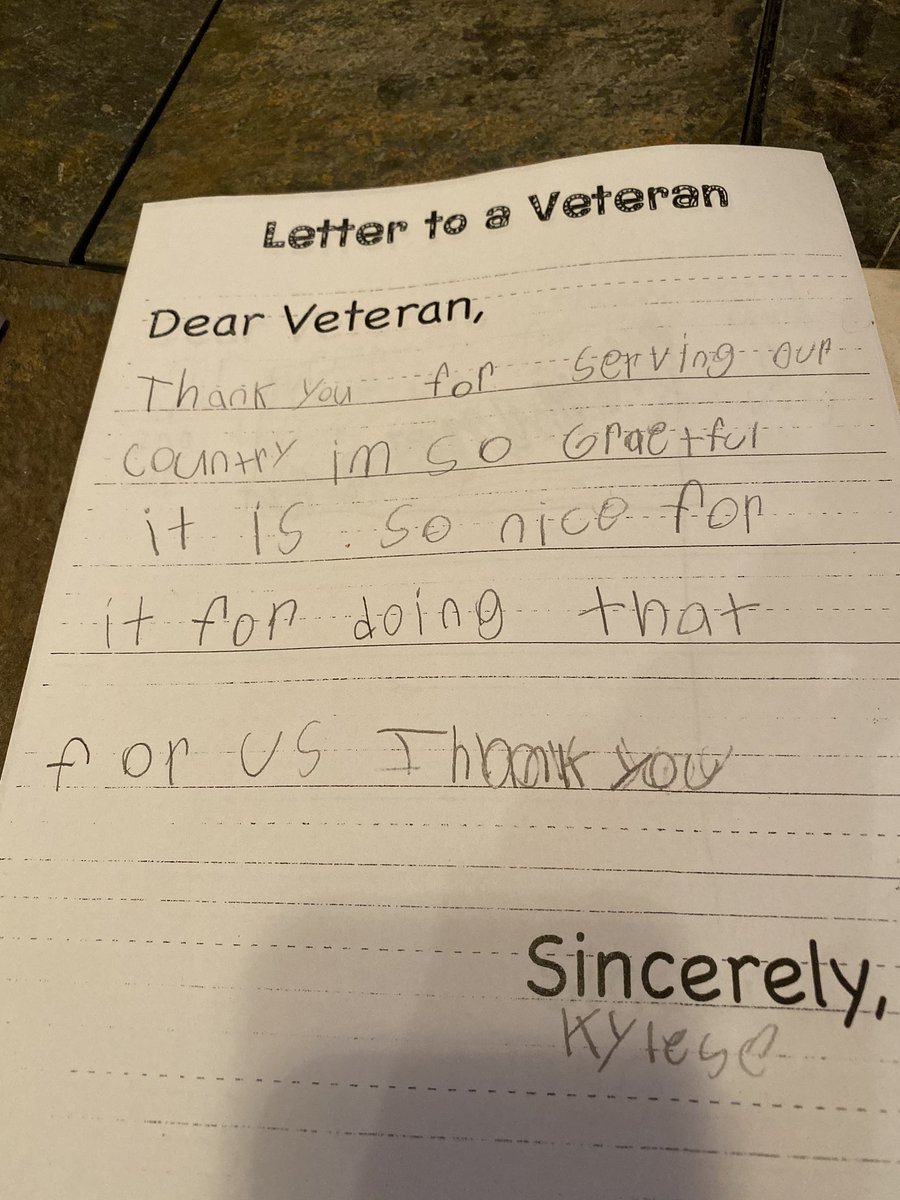 Letter to a Veteran
Dear Veteran,
Thank you for serving our
country im so Graetful
it is so nice for
it for doing that
for us Thank you
Sincerely,
Kylese